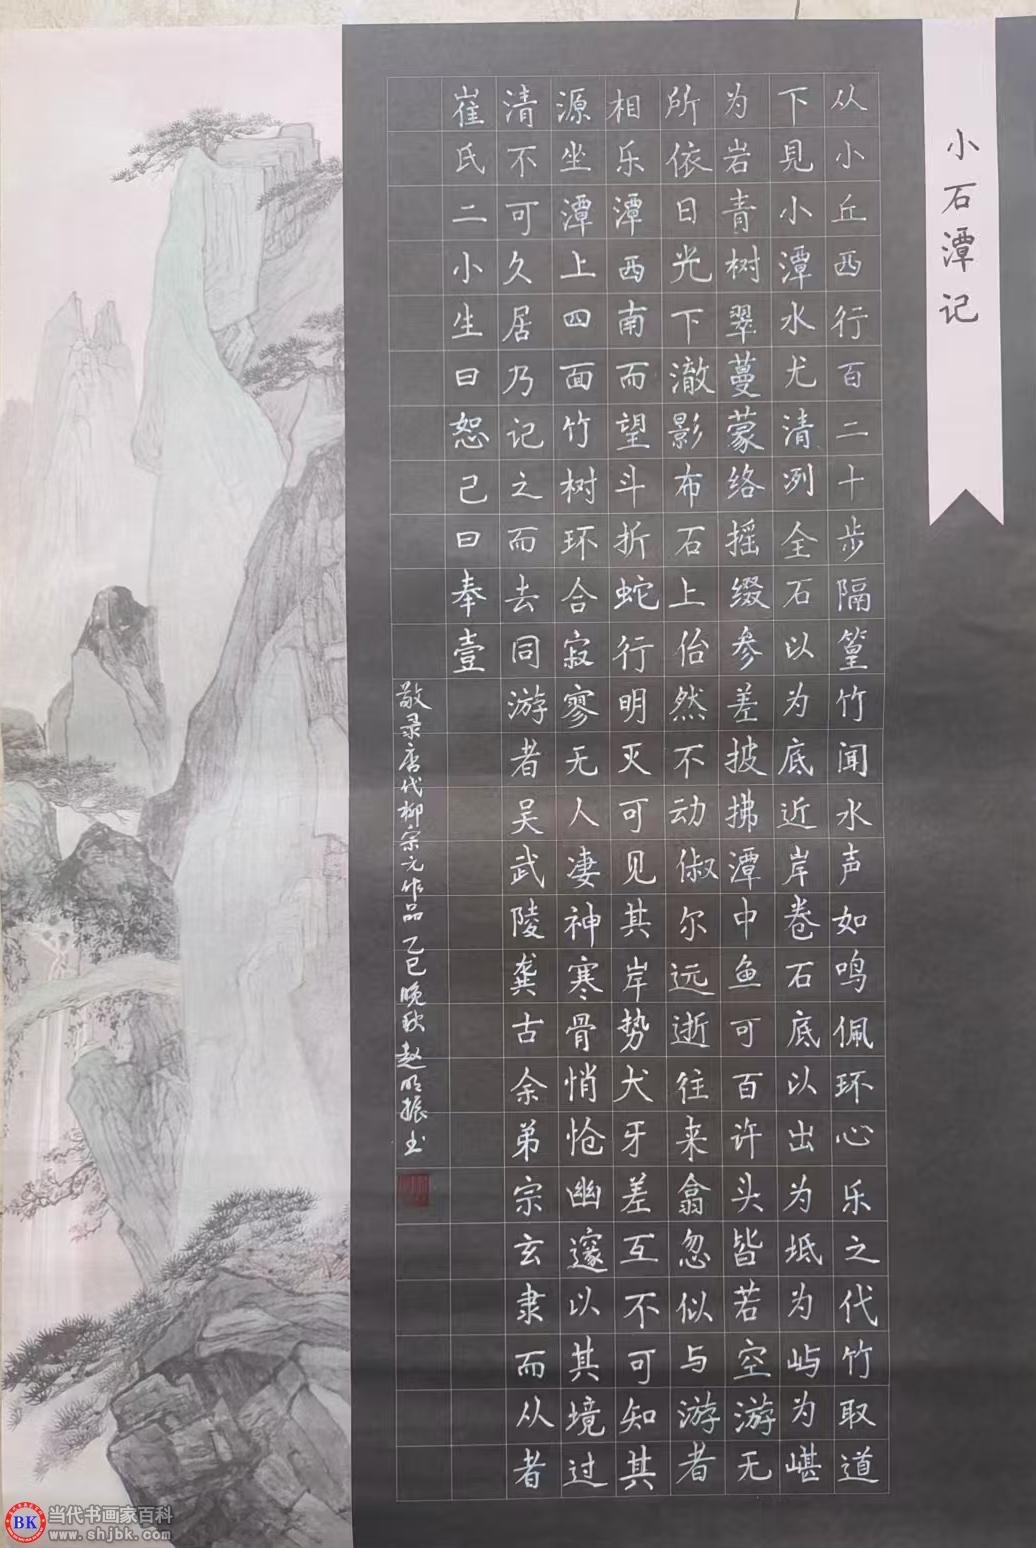 小石潭记
从小丘西行百二十步隔篁竹闻水声如鸣佩环心乐之代竹取道
下見小潭水尤清冽全石以为底近岸卷石底以出为坻为屿为嵁
为岩青树翠蔓蒙络摇缀参差披拂潭中鱼可百许头皆若空游无
所依日光下澈影布石上佁然不动俶尔远逝往来翕忽似与游者
相乐潭西南而望斗折蛇行明灭可见其岸势犬牙差互不可知其
源坐潭上四面竹树环合寂寥无人凄神寒骨悄怆幽邃以其境过
清不可久居乃记之而去同游者吴武陵龚古余弟宗玄隶而从者
崔氏二小生曰恕己曰奉壹
敬录唐代柳宗元作品乙巳晚秋赵明振书
BK
当代书画家百科
www.shjbk.com